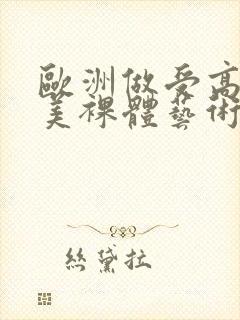 歐洲做受高
美裸體藝術
絲黛拉